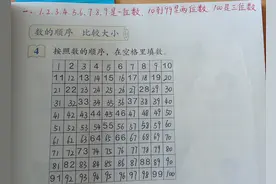 一、1.2.3.4.5.6.7.8.9是一位数，10到99是两位数，100是三位数
数的顺序 比较大小
4 按照数的顺序，在空格里填数。
1 2 3 4 5 6 7 8 9 10
11 12 13 14 15 16 17 18 19 20
21 22 23 24 25 26 27 28 29 30
31 32 33 34 35 36 37 38 39 40
41 42 43 44 45 46 47 48 49 50
51 52 53 54 55 56 57 58 59 60
61 62 63 64 65 66 67 68 69 70
71 72 73 74 75 76 77 78 79 80
81 82 83 84 85 86 87 88 89 90
91 92 93 94 95 96 97 98 99 100